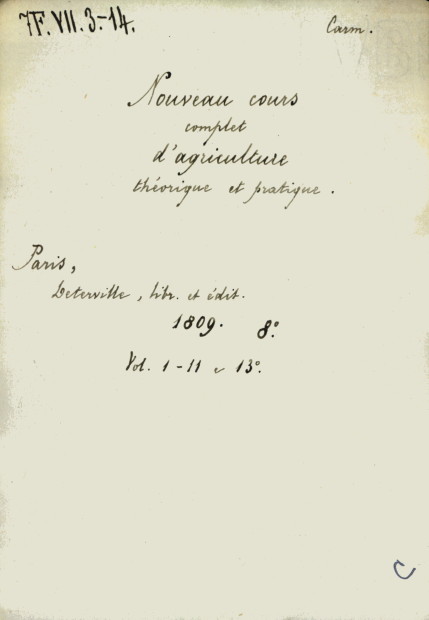 7F. VII. 3-14.
Carm.
Nouveau cours
complet
d'agriculture
théorique et pratique.
Paris,
Deterville, libr. et édit.
1809. 8°.
Vol. 1-11 e 13°.
C